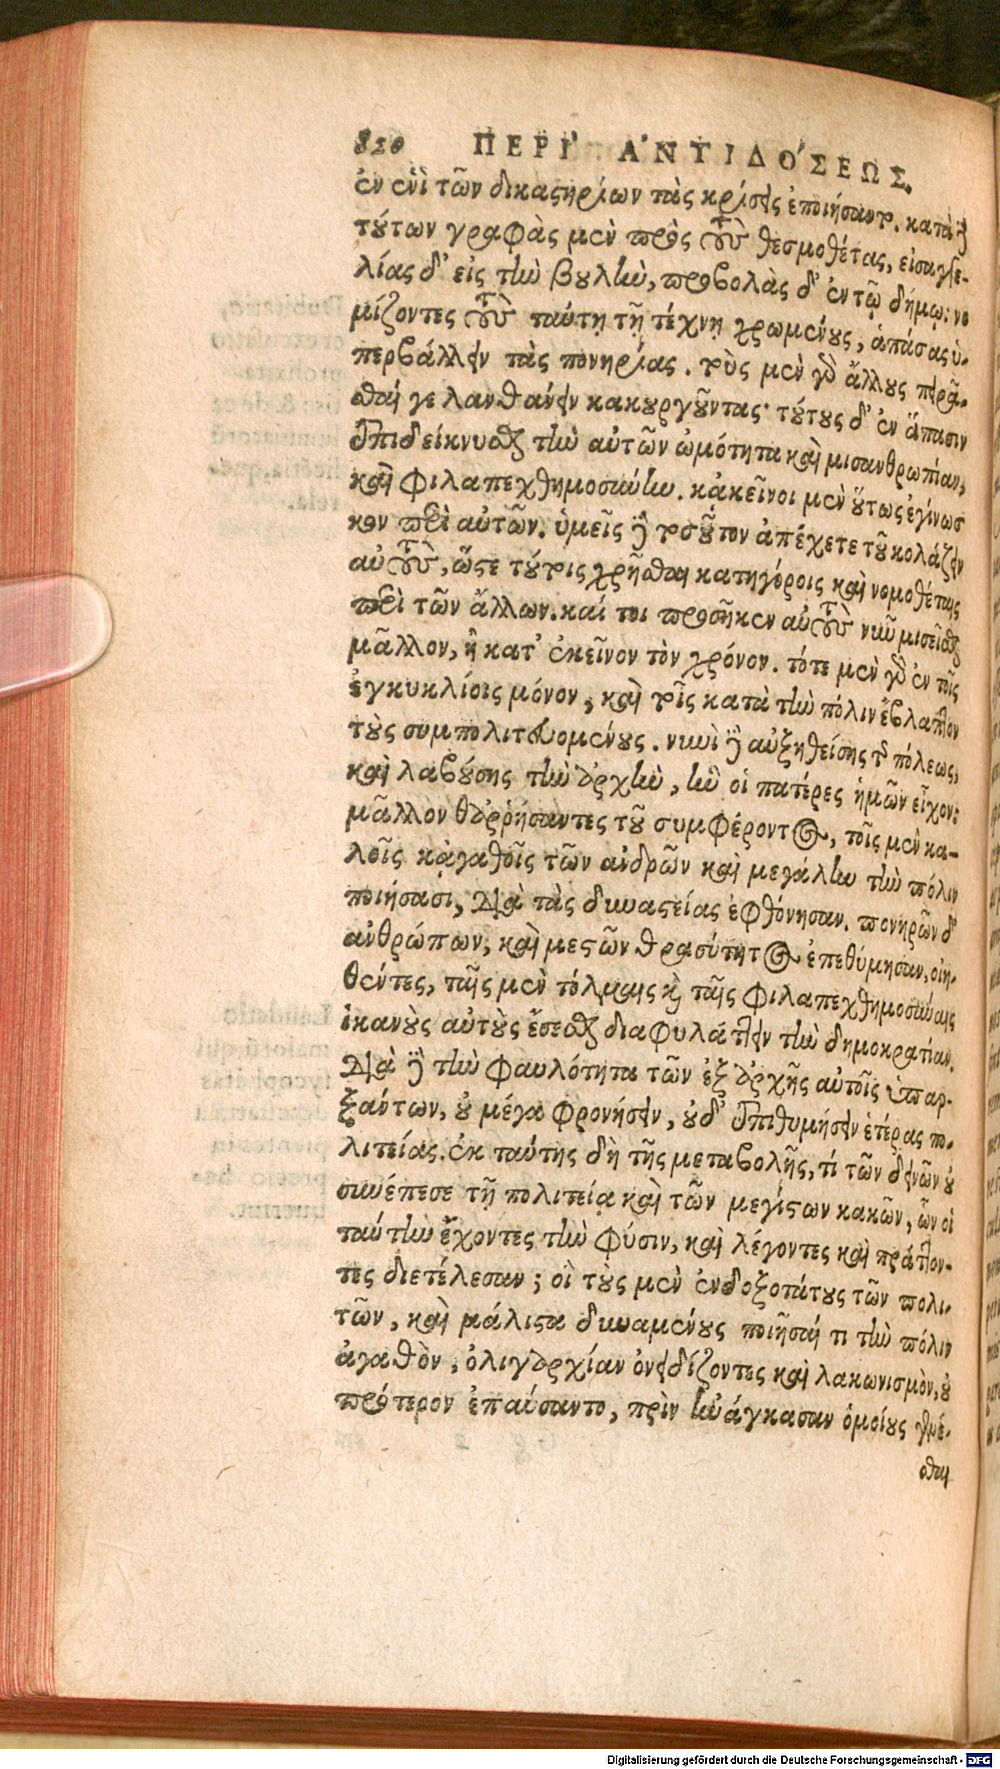 820 ΠΕΡΙ' Α'ΝΤΙΔΟ'ΣΕΩΣ.
ἐν ἑνὶ τῶν δικαστηρίων τὰς κρίσεις ἐποιήσαντο. κατὰ δὲ
τούτων γραφὰς μὲν πρὸς τοὺς θεσμοθέτας, εἰσαγγε-
λίας δ' εἰς τὴν βουλὴν, προβολὰς δ' ἐν τῷ δήμῳ: νο
μίζοντες τοὺς ταύτῃ τῇ τέχνῃ χρωμένους, ἁπάσας ὑ-
περβάλλειν τὰς πονηρίας. τοὺς μὲν γὰρ ἄλλους πειρᾶ-
σθαί γε λανθάνειν κακουργοῦντας· τούτους δ' ἐν ἅπασιν
ἐπιδείκνυσθαι τὴν αὑτῶν ὠμότητα καὶ μισανθρωπίαν,
καὶ φιλαπεχθημοσύνην. κἀκεῖνοι μὲν οὕτως ἐγίνωσ
κον περὶ αὐτῶν. ὑμεῖς δὲ τοσοῦτον ἀπέχετε τοῦ κολάζειν
αὐτοὺς, ὥστε τούτοις χρῆσθαι κατηγόροις καὶ νομοθέταις
περὶ τῶν ἄλλων. καί τοι προσῆκεν αὐτοὺς νῦν μισεῖσθαι
μᾶλλον, ἢ κατ' ἐκεῖνον τὸν χρόνον. τότε μὲν γὰρ ἐν τοῖς
ἐγκυκλίοις μόνον, καὶ τοῖς κατὰ τὴν πόλιν ἔβλαπτον
τοὺς συμπολιτευομένους. νυνὶ δὲ αὐξηθείσης τῆς πόλεως,
καὶ λαβούσης τὴν ἀρχὴν, ἣν οἱ πατέρες ἡμῶν εἶχον:
μᾶλλον θαῤῥήσαντες τοῦ συμφέροντος, τοῖς μὲν κα-
λοῖς κἀγαθοῖς τῶν ἀνδρῶν καὶ μεγάλην τὴν πόλιν
ποιήσασι, διὰ τὰς δυναστείας ἐφθόνησαν. πονηρῶν δ'
ἀνθρώπων, καὶ μεστῶν θρασύτητος ἐπεθύμησαν, οἰη-
θέντες, ταῖς μὲν τόλμαις καὶ ταῖς φιλαπεχθημοσύναις
ἱκανοὺς αὐτοὺς ἔσεσθαι διαφυλάττειν τὴν δημοκρατίαν.
διὰ δὲ τὴν φαυλότητα τῶν ἐξ ἀρχῆς αὐτοῖς ὑπαρ-
ξάντων, οὐ μέγα φρονήσειν, οὐδ' ἐπιθυμήσειν ἑτέρας πο-
λιτείας. ἐκ ταύτης δὴ τῆς μεταβολῆς, τί τῶν δεινῶν οὐ
συνέπεσε τῇ πολιτείᾳ καὶ τῶν μεγίστων κακῶν, ὧν οἱ
ταύτην ἔχοντες τὴν φύσιν, καὶ λέγοντες καὶ πράττον-
τες διετέλεσαν; οἳ τοὺς μὲν ἐνδοξοτάτους τῶν πολι-
τῶν, καὶ μάλιστα δυναμένους ποιῆσαί τι τὴν πόλιν
ἀγαθὸν, ὀλιγαρχίαν ὀνειδίζοντες καὶ λακωνισμὸν, οὐ
πρότερον ἐπαύσαντο, πρὶν ἠνάγκασαν ὁμοίους γενέ-
σθαι
Digitalisierung gefördert durch die Deutsche Forschungsgemeinschaft - DFG